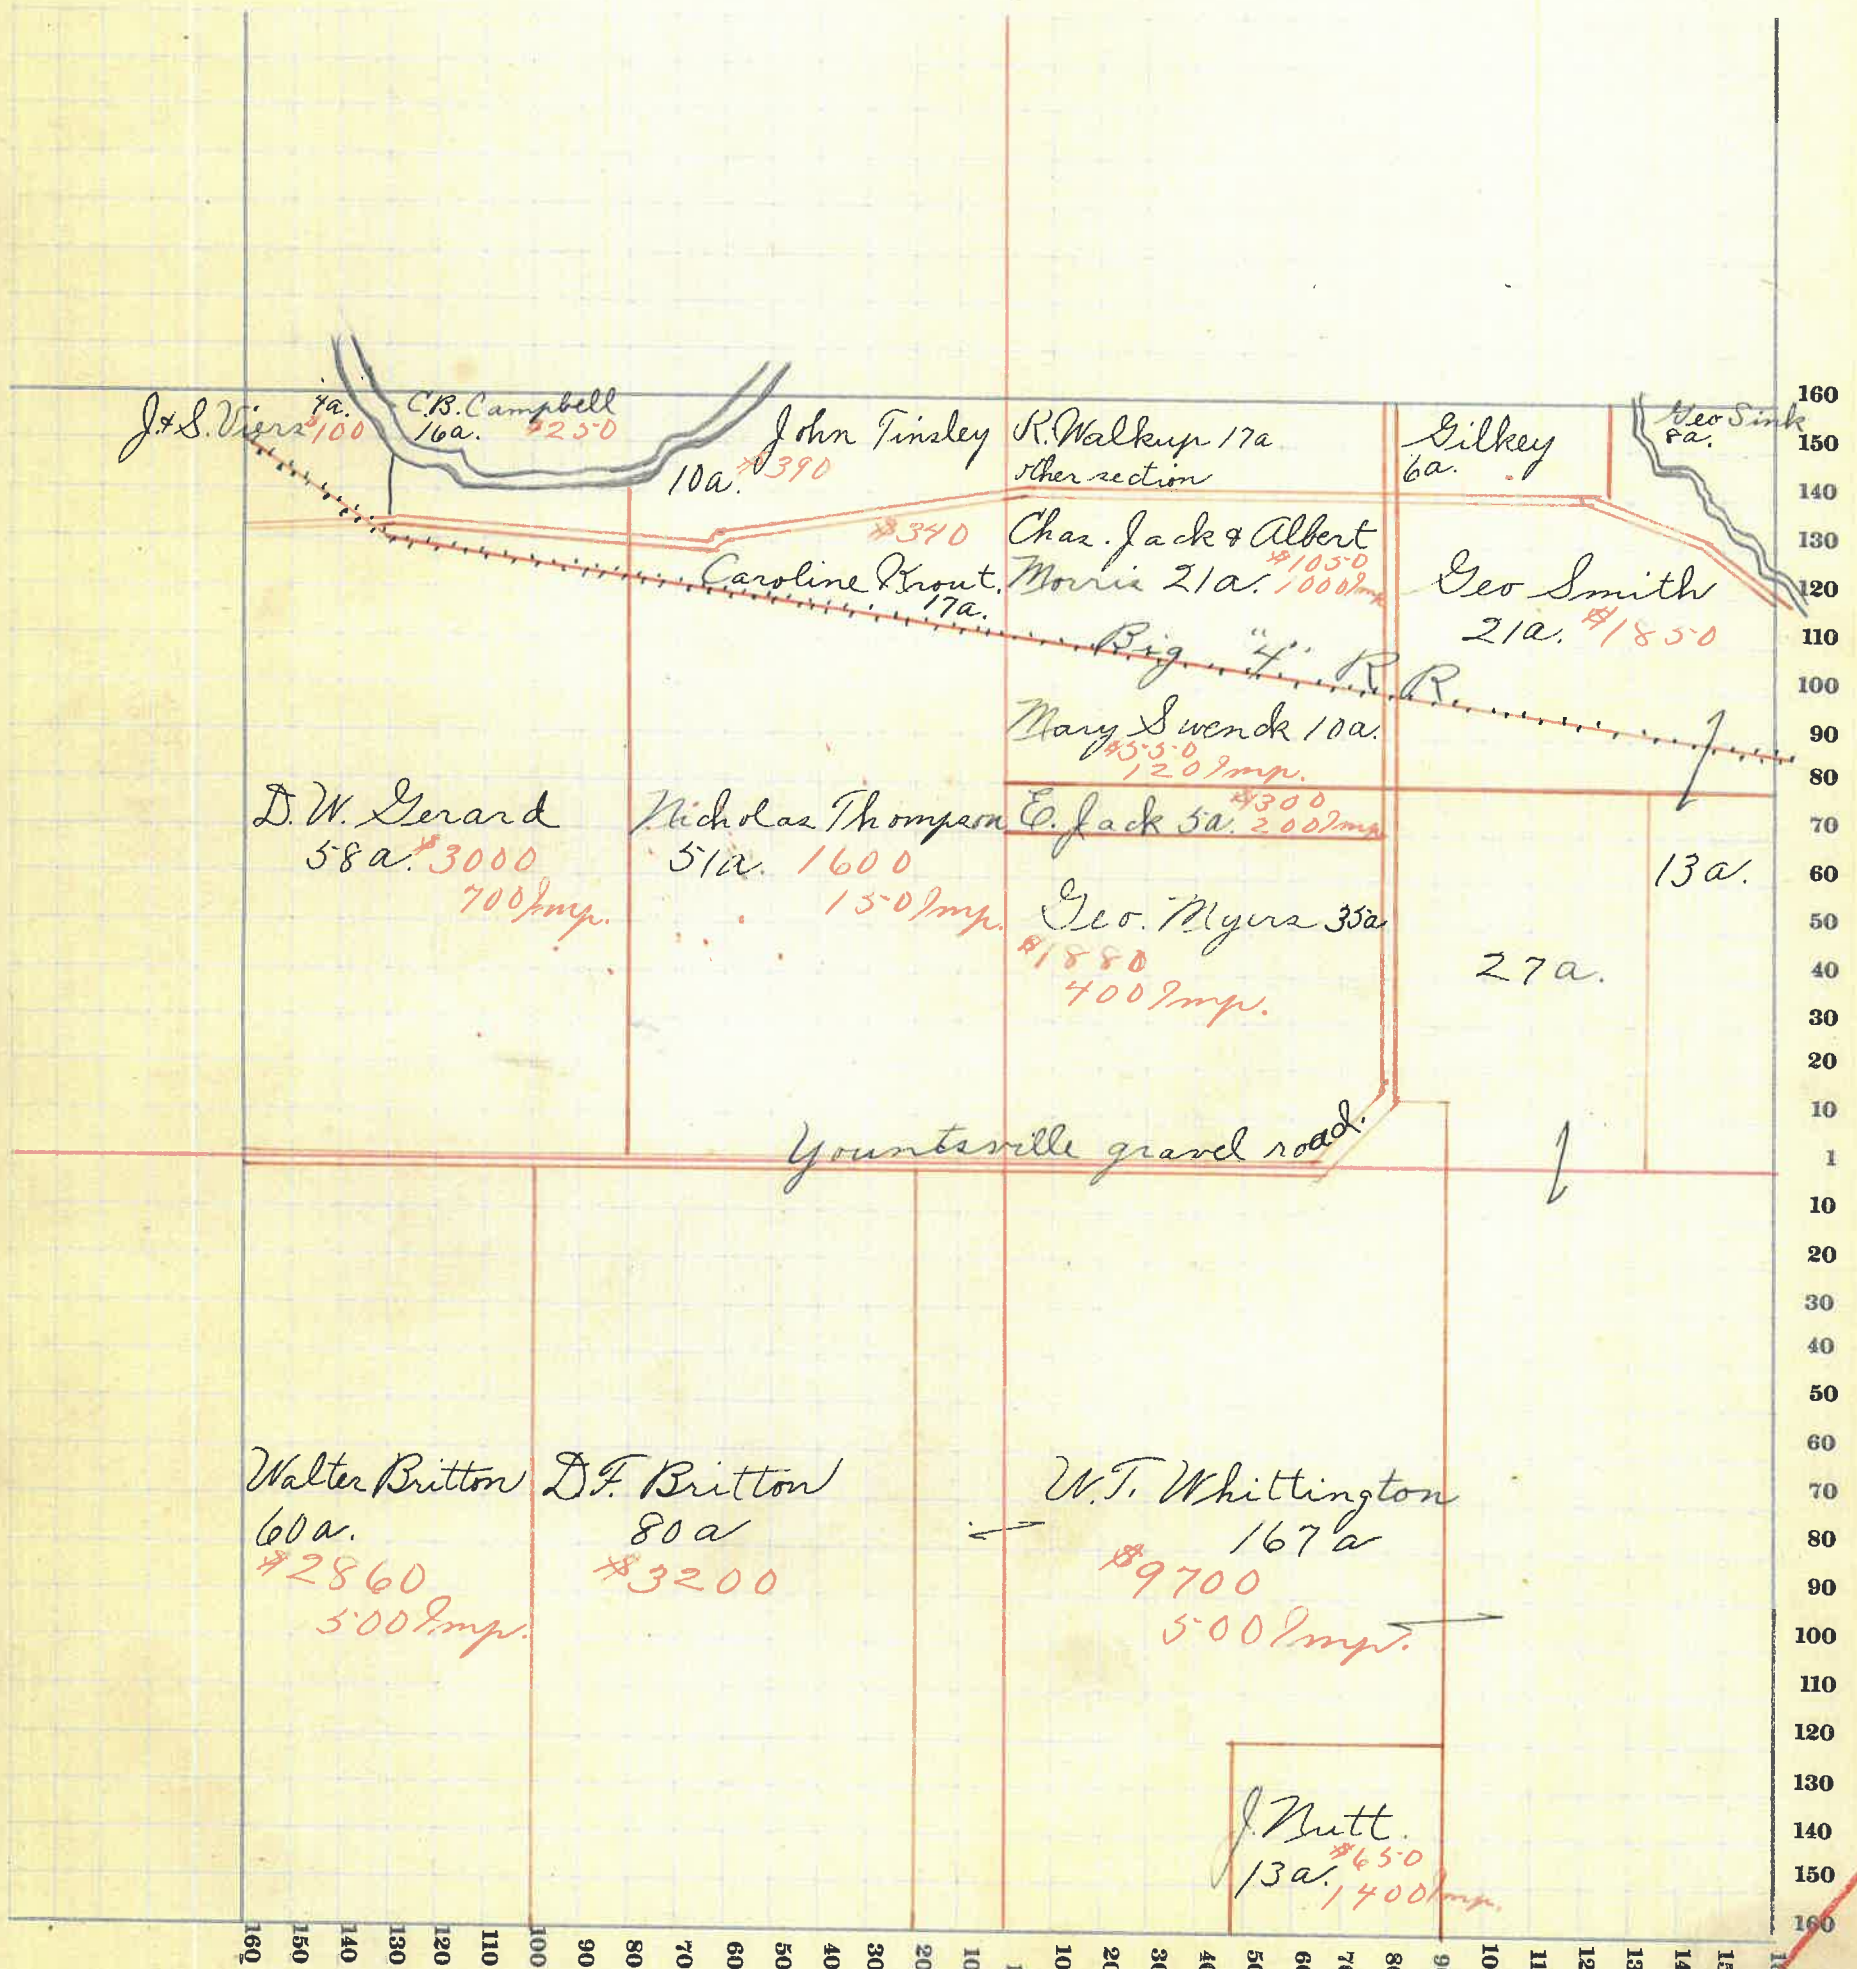 J. & S. Viers
4a.
$100
C.B. Campbell
16a. $250
John Tinsley
10a. $390
R. Walkup 17a
other section
Gilkey
6a.
Geo Sink
8a.
$340
Caroline Krout.
17a.
Chas. Jack & Albert
Morris 21a. $1050
1000 Imp
Geo Smith
21a. $1850
Big "4" R R
Mary Swenck 10a.
$550
120 Imp.
D. W. Gerard
58a. $3000
700 Imp.
Nicholas Thompson
51a. 1600
150 Imp.
E. Jack 5a. $300
200 Imp
Geo. Myers 35a
$1880
400 Imp.
13a.
27a.
Yountsville gravel road.
Walter Britton
60a.
$2860
500 Imp.
D.F. Britton
80a
$3200
W.T. Whittington
167a
$9700
500 Imp.
J. Butt.
13a. $650
1400 Imp.
160
150
140
130
120
110
100
90
80
70
60
50
40
30
20
10
1
10
20
30
40
50
60
70
80
90
100
110
120
130
140
150
160
160 150 140 130 120 110 100 90 80 70 60 50 40 30 20 10 10 20 30 40 50 60 70 80 90